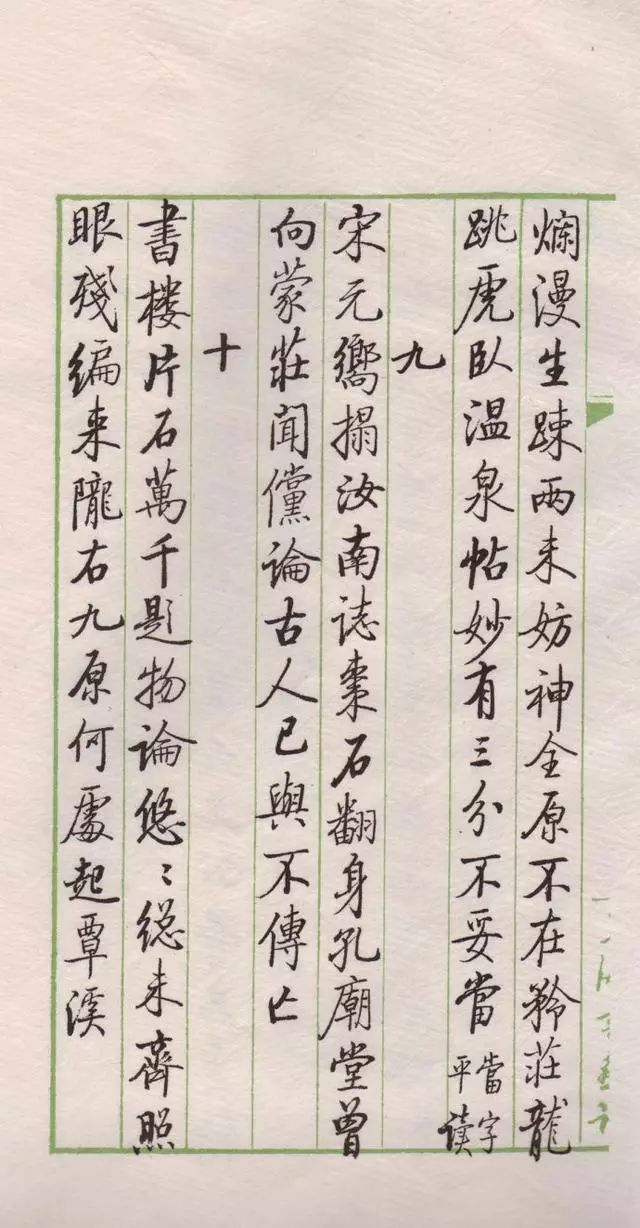 爛漫生疎兩未妨神全原不在矜莊龍
跳虎臥温泉帖妙有三分不妥當當字
平讀
九
宋元嚮搨汝南誌棗石翻身孔廟堂曾
向蒙莊聞儻論古人已與不傳亡
十
書楼片石萬千題物論悠〻総未齊照
眼殘編来隴右九原何處起覃溪